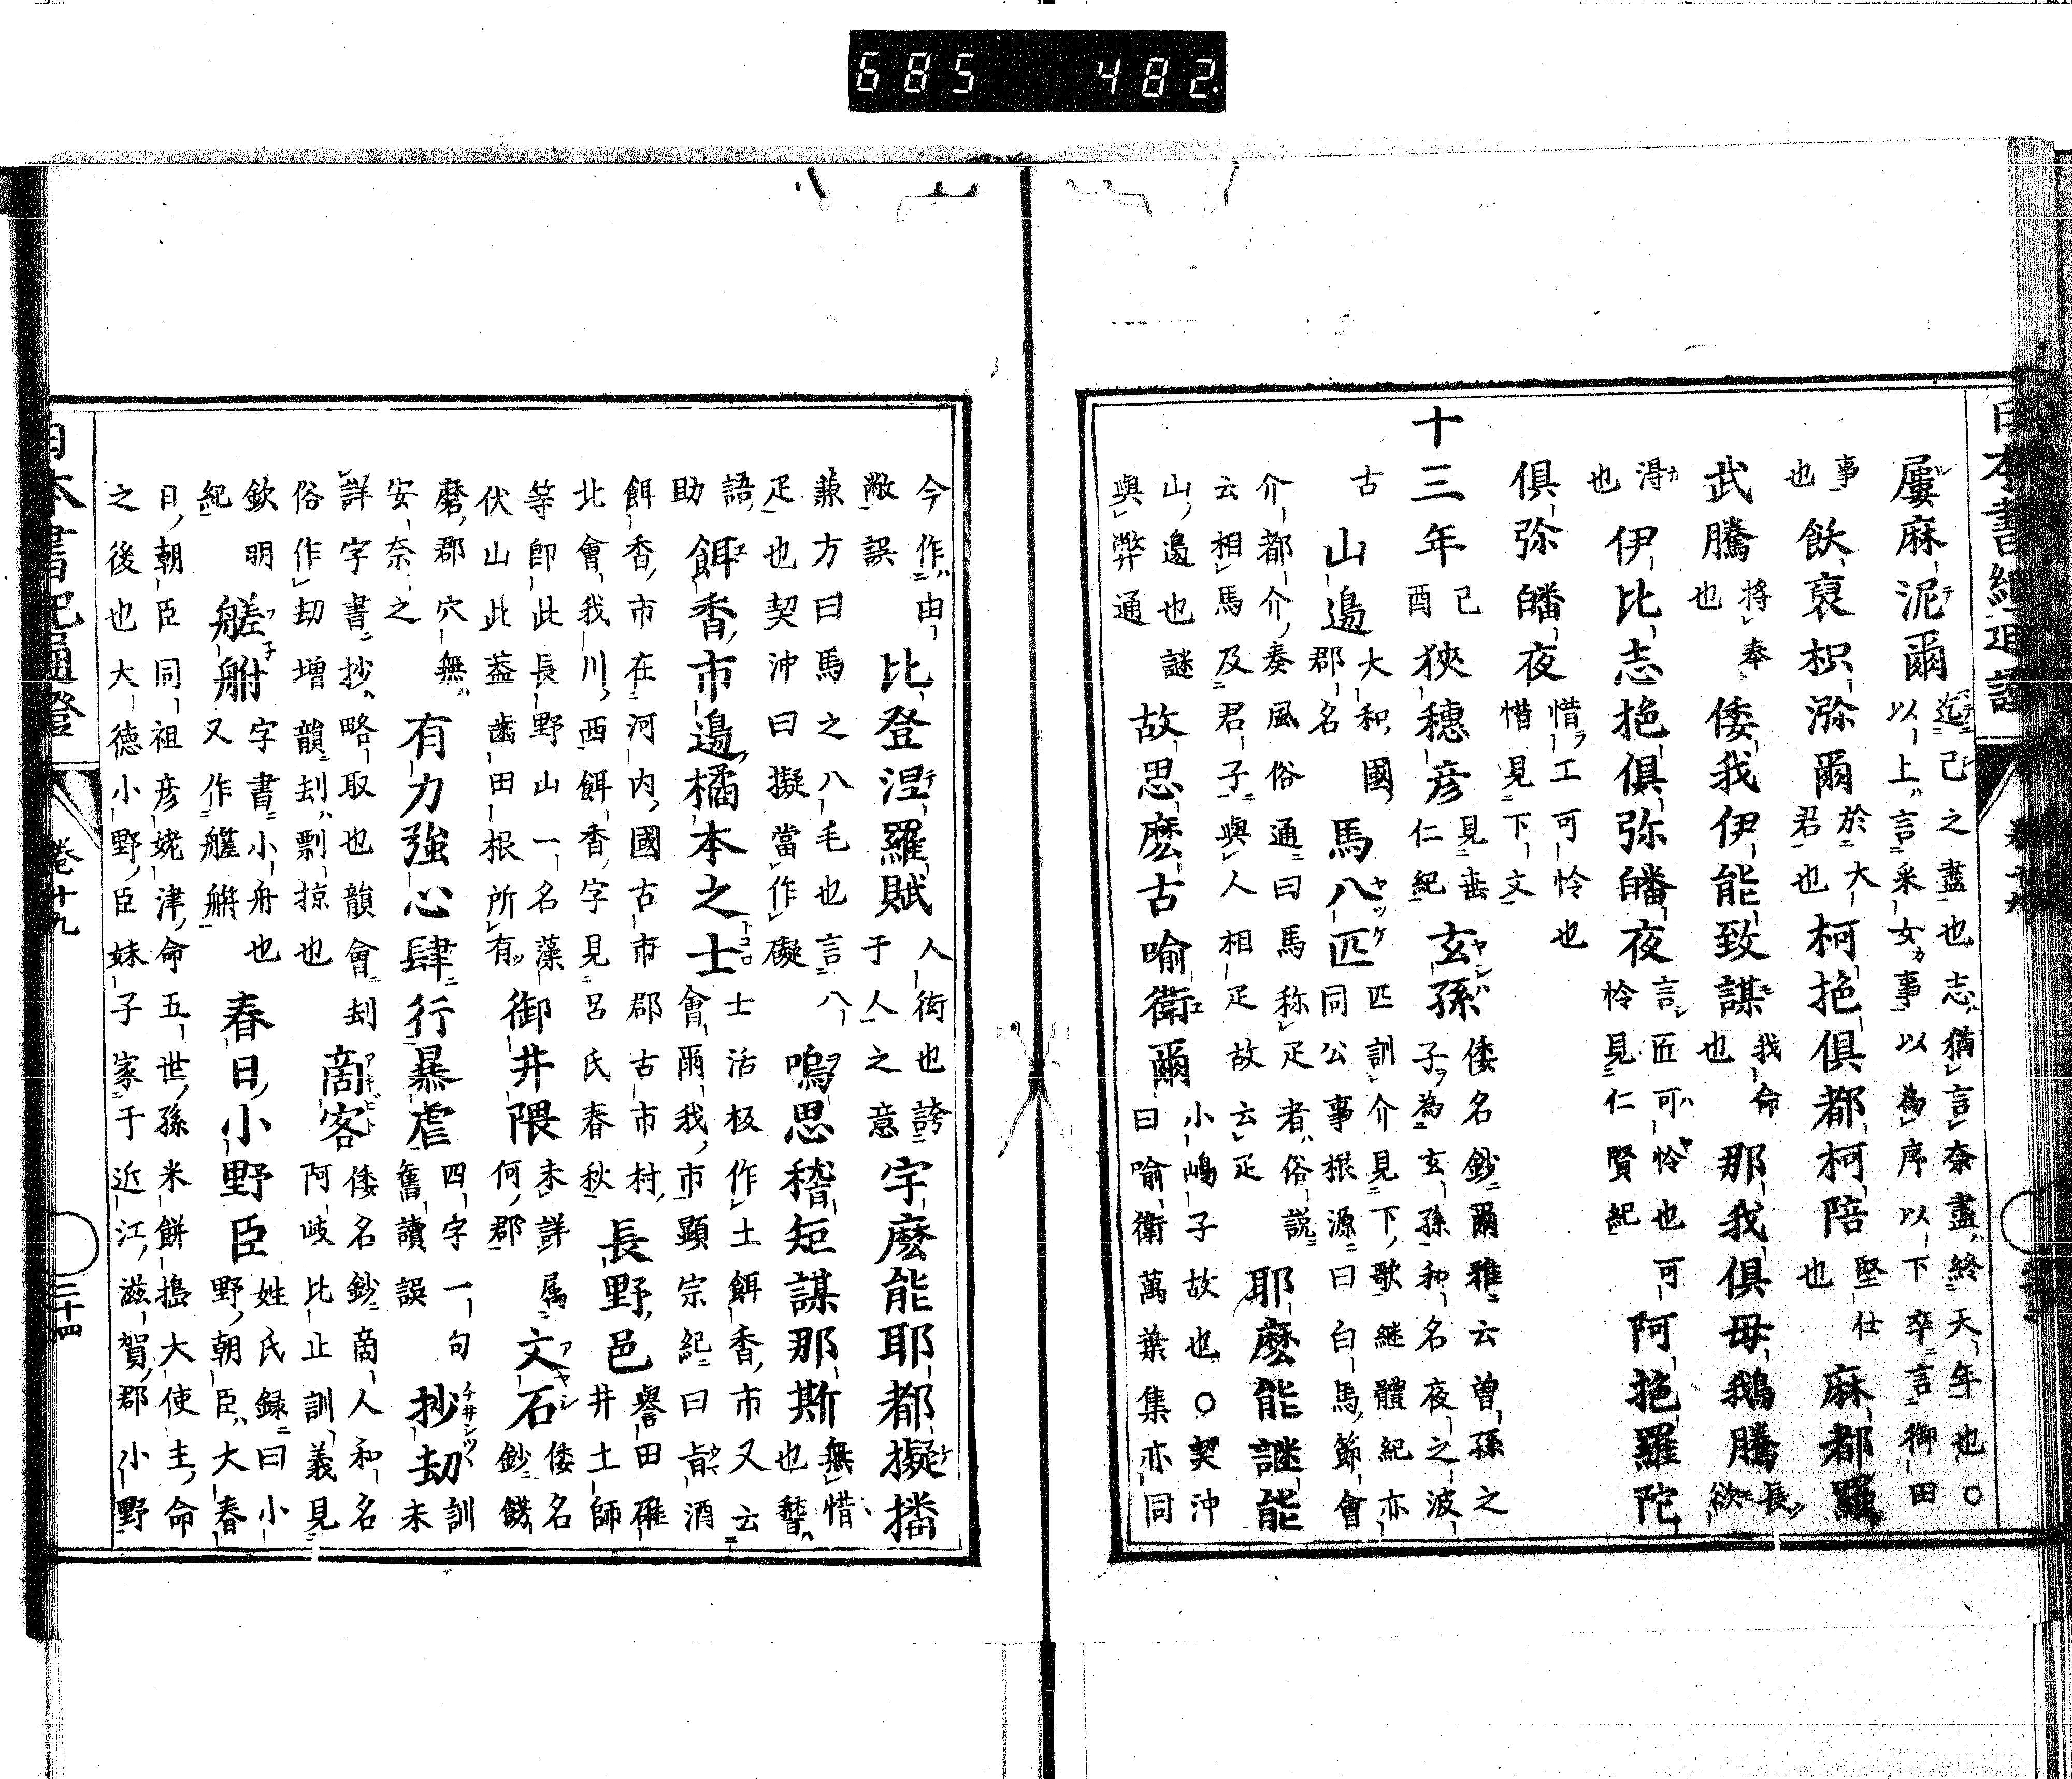 685 482
屢麻泥爾迄己之盡也志猶言奈盡終天年也〇以上言采女事以為序以下卒言御田
事也飫裒枳瀰爾於大君也柯挓俱都柯陪堅仕也麻都羅
武騰將奉也倭我伊能致謀我命也那我俱母鵝騰長欲
淂也伊比志挓俱弥皤夜言匠可怜也可怜見仁賢紀阿挓羅陀
俱弥皤夜惜工可怜也惜見下文
十三年己酉狹穗彦見垂仁紀玄孫倭名鈔爾雅云曽孫之子為玄孫和名夜之波
古山邉大和國郡名馬八匹匹訓介見下歌継體紀亦同公事根源曰白馬節會
介都介奏風俗通曰馬称疋者俗説云相馬及君子與人相疋故云疋耶麼能謎能
山邉也謎與弊通故思麼古喩衛爾小嶋子故也〇契沖曰喩衛萬葉集亦同
今作由敝誤比登涅羅賦人衒也誇于人之意宇麼能耶都擬播
兼方曰馬之八毛也言八疋也契沖曰擬當作礙嗚思稽矩謀那斯無惜也瞀
語助餌香市邉橘本之士士活板作土餌香市又云會爾我市顯宗紀曰旨酒
餌香市在河内國古市郡古市村北會我川西餌香字見呂氏春秋長野邑譽田碓井土師
等即此長野山一名藻伏山此葢菌田根所有御井隈未詳属何郡文石倭名鈔餝
磨郡穴無安奈之有力強心肆行暴虐四字一句舊讀誤抄劫訓未
詳字書抄略取也韻會刦俗作劫増韻刦剽掠也啇客倭名鈔啇人和名阿岐比止訓義見
欽明紀艖䑧字書小舟也又作艖䑧春日小野臣姓氏録曰小野朝臣大春
日朝臣同祖彦姥津命五世孫米餅搗大使主命之後也大徳小野臣妹子家于近江滋賀郡小野
日本書紀通證 卷十九 三十四